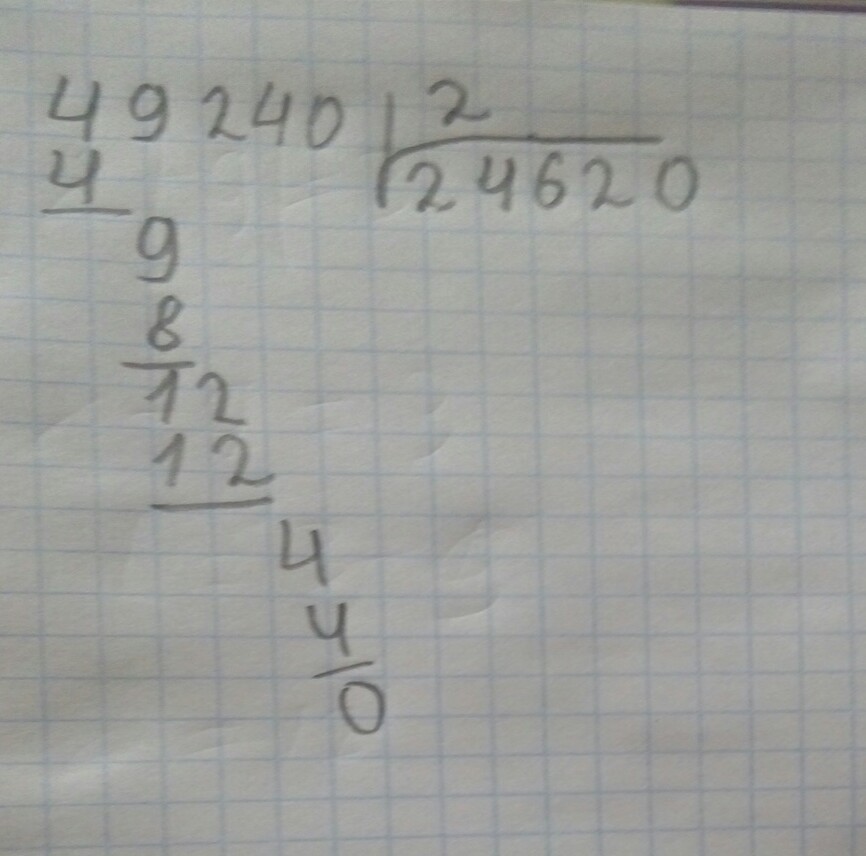 49240 2
4 24620
9
8
12
12
4
4
0